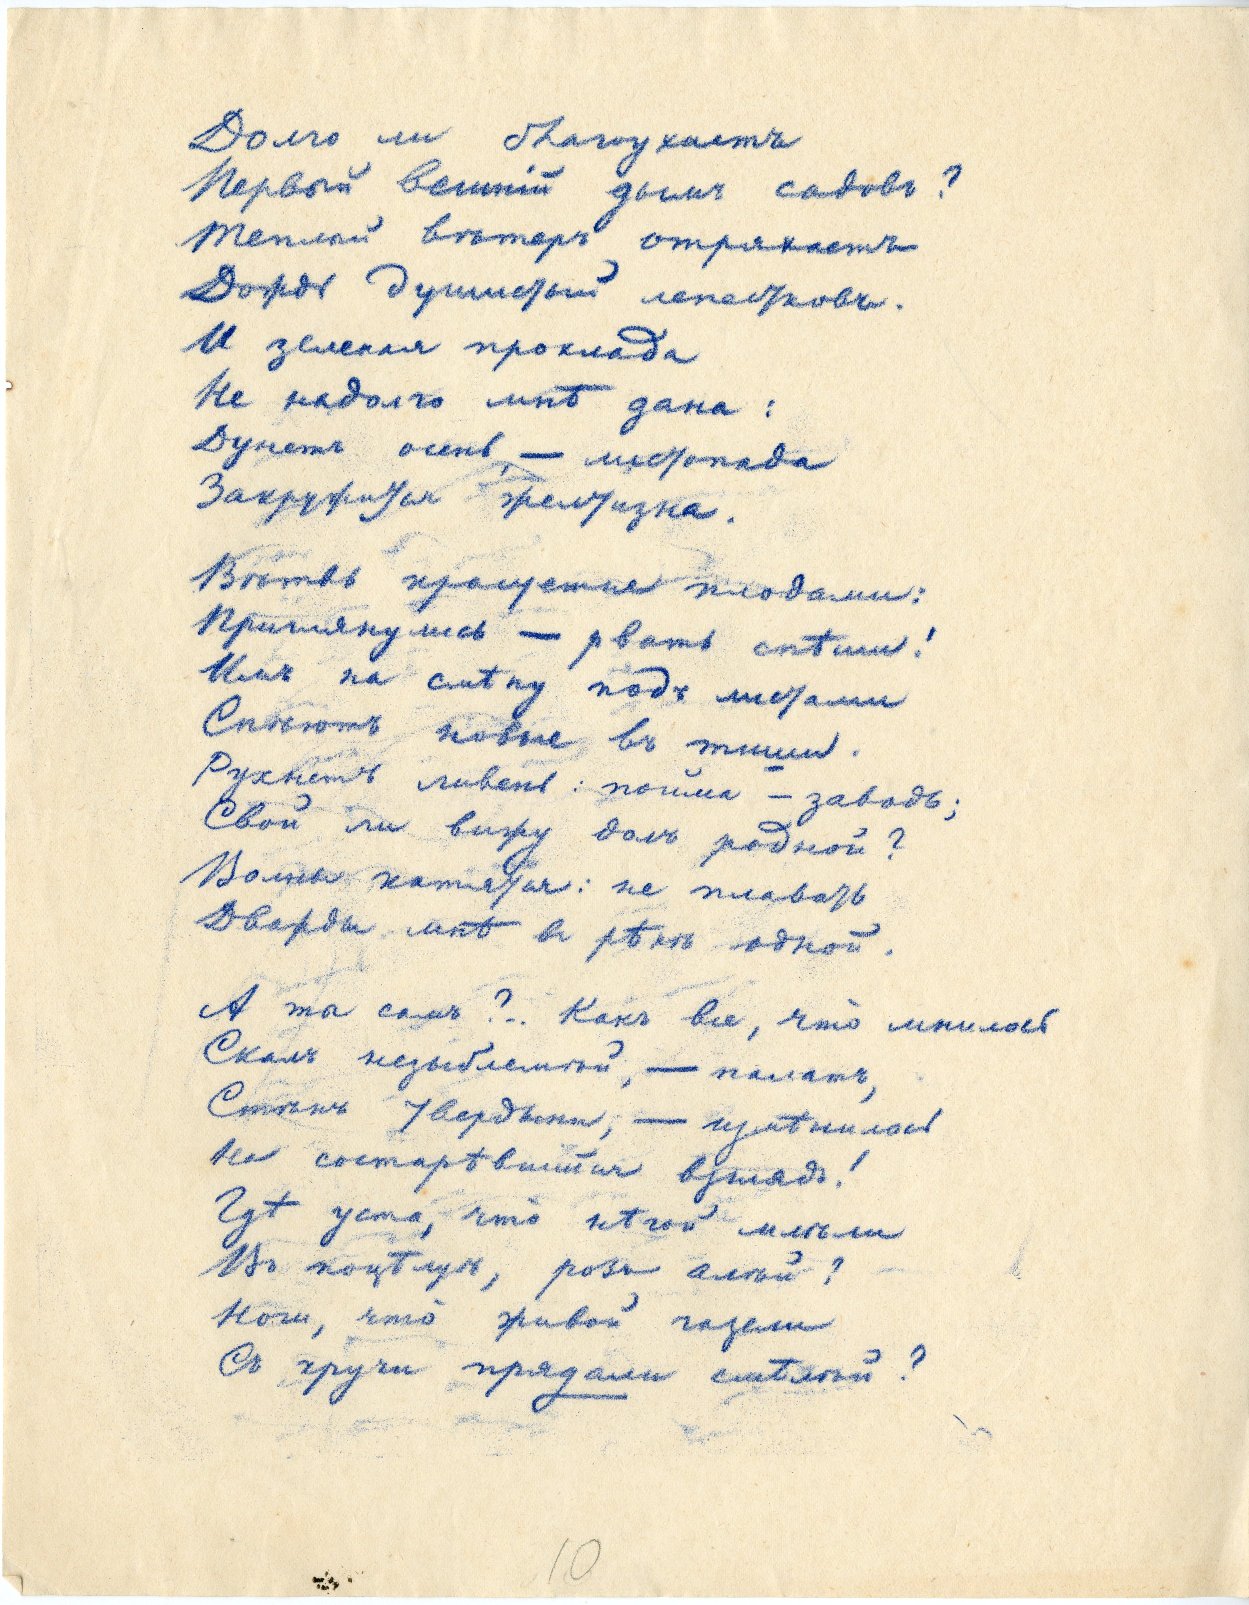 Долго ли благоухаетъ
Первый вешній дымъ садовъ?
Теплый вѣтеръ отряхаетъ
Дождь душистый лепестковъ.
И зеленая прохлада
Не надолго мнѣ дана:
Дунетъ осень, — листопада
Закружится желтизна.
Вѣтвь красуется плодами:
Приглянулись — рвать спѣши!
Имъ на смѣну подъ листами
Спѣютъ новые въ тиши.
Рухнетъ ливень: пойма — заводь;
Свой ли вижу долъ родной?
Волны катятся: не плавать
Дважды мнѣ въ рѣкѣ одной.
А ты самъ?.. Какъ все, что̀ мнилось
Скалъ незыблемѣй, — палатъ,
Стѣнъ твердыни, — измѣнилось
На состарѣвшійся взглядъ!
Гдѣ уста, что̀ нѣгой млѣли
Въ поцѣлуѣ, розъ алѣй?
Ноги, что̀ живой газели
Съ кручи прядали смѣлѣй?
10